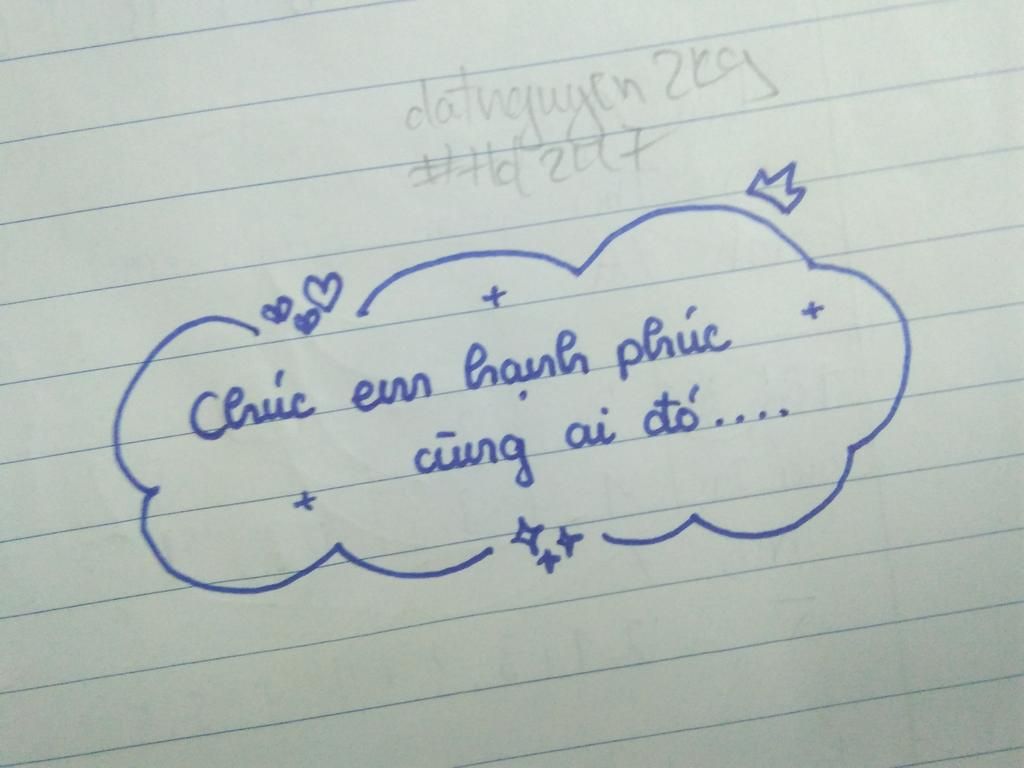 datnguyen2k9
Chúc em hạnh phúc
cùng ai đó....